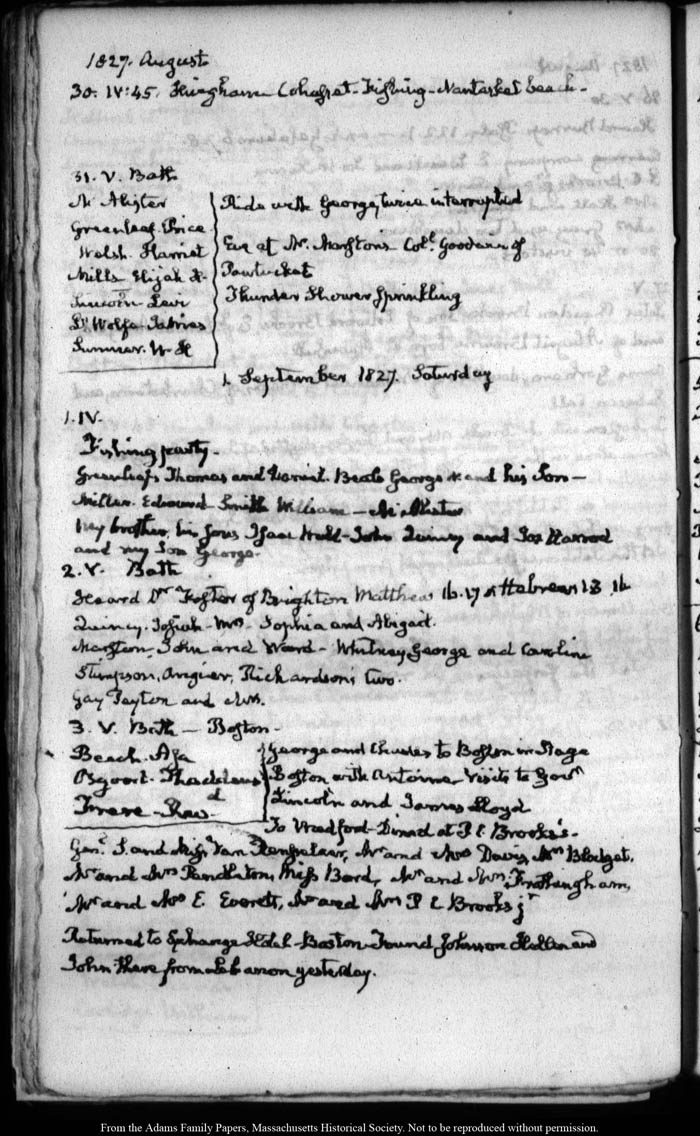 1827. August
30. IV:45. Hingham Cohasset - Fishing - Nantasket beach -
31. V. Bath
Greenleaf. Price
Welsh. Harriet
Mills. Elijah H.
Lincoln Levi
D'Wolfe James
Sumner. W H
Ride with George, twice interrupted
Eve at Mr. Marston's Coll. Goodwin of
Pawtucket
Thunder Shower Sprinkling
1. September 1827. Saturday
1. IV.
Fishing party -
Greenleafs Thomas and Daniel. Beale George W. and his Son -
Miller. Edward - Smith William -
My brother, his Sons, Isaac Hull - John Quincy and Jos Harrod
and my Son George.
2. V. Bath
Heard Dr. Foster of Brighton Matthew 16. 17 & Habrews 13. 16
Quincy. Josiah - Mrs - Sophia and Abigail.
Marston. John and Ward - Whitney George and Caroline
Stimpson, Angier, Richardson's two.
Gay Payton and Mrs.
3. V. Bath - Boston -
Beach. Asa
Osgood. Thaddeus
George and Charles to Boston in Stage
Boston with Antoine. Visits to Govr
Lincoln and James Lloyd
To Medford - Dined at P. C. Brooks's -
Genl. S. and Miss Van Renssalaer, Mr and Mrs Davis, Mrs Blodget,
Mr and Mrs Pendleton, Miss Bord, Mr and Mrs Frothingham,
Mr and Mrs E. Everett, Mr and Mrs P C Brooks jr
Returned to Exchange Hotel - Boston - Found Johnson Hellen and
John there from Lebanon yesterday.
From the Adams Family Papers, Massachusetts Historical Society. Not to be reproduced without permission.